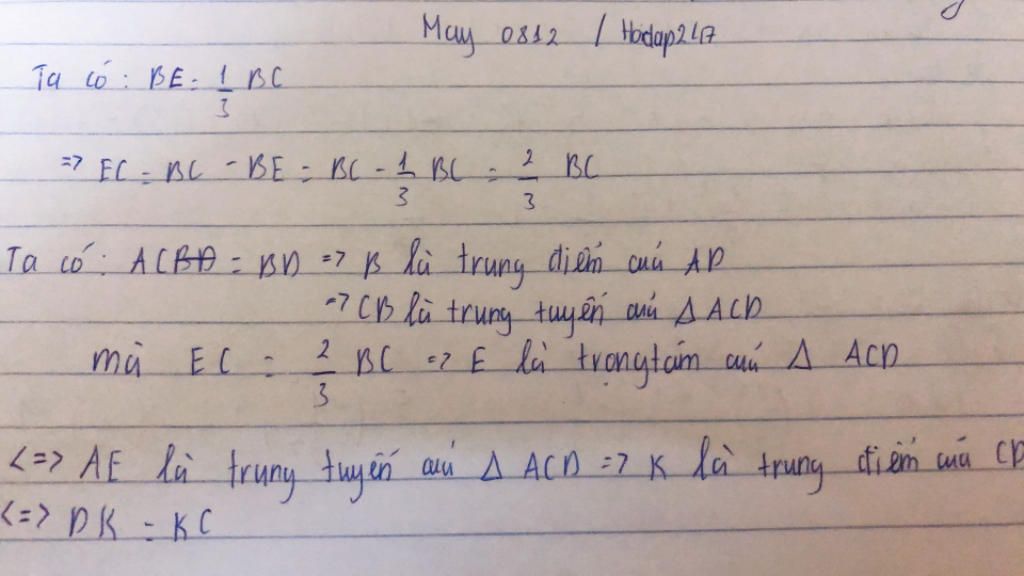 May 0812 / Hoidap247
Ta có: BE = 1/3 BC
=> EC = BC - BE = BC - 1/3 BC = 2/3 BC
Ta có: AC = BD => B là trung điểm của AD
=> CB là trung tuyến của Δ ACD
mà EC = 2/3 BC => E là trọng tâm của Δ ACD
<=> AE là trung tuyến của Δ ACD => K là trung điểm của CD
<=> DK = KC